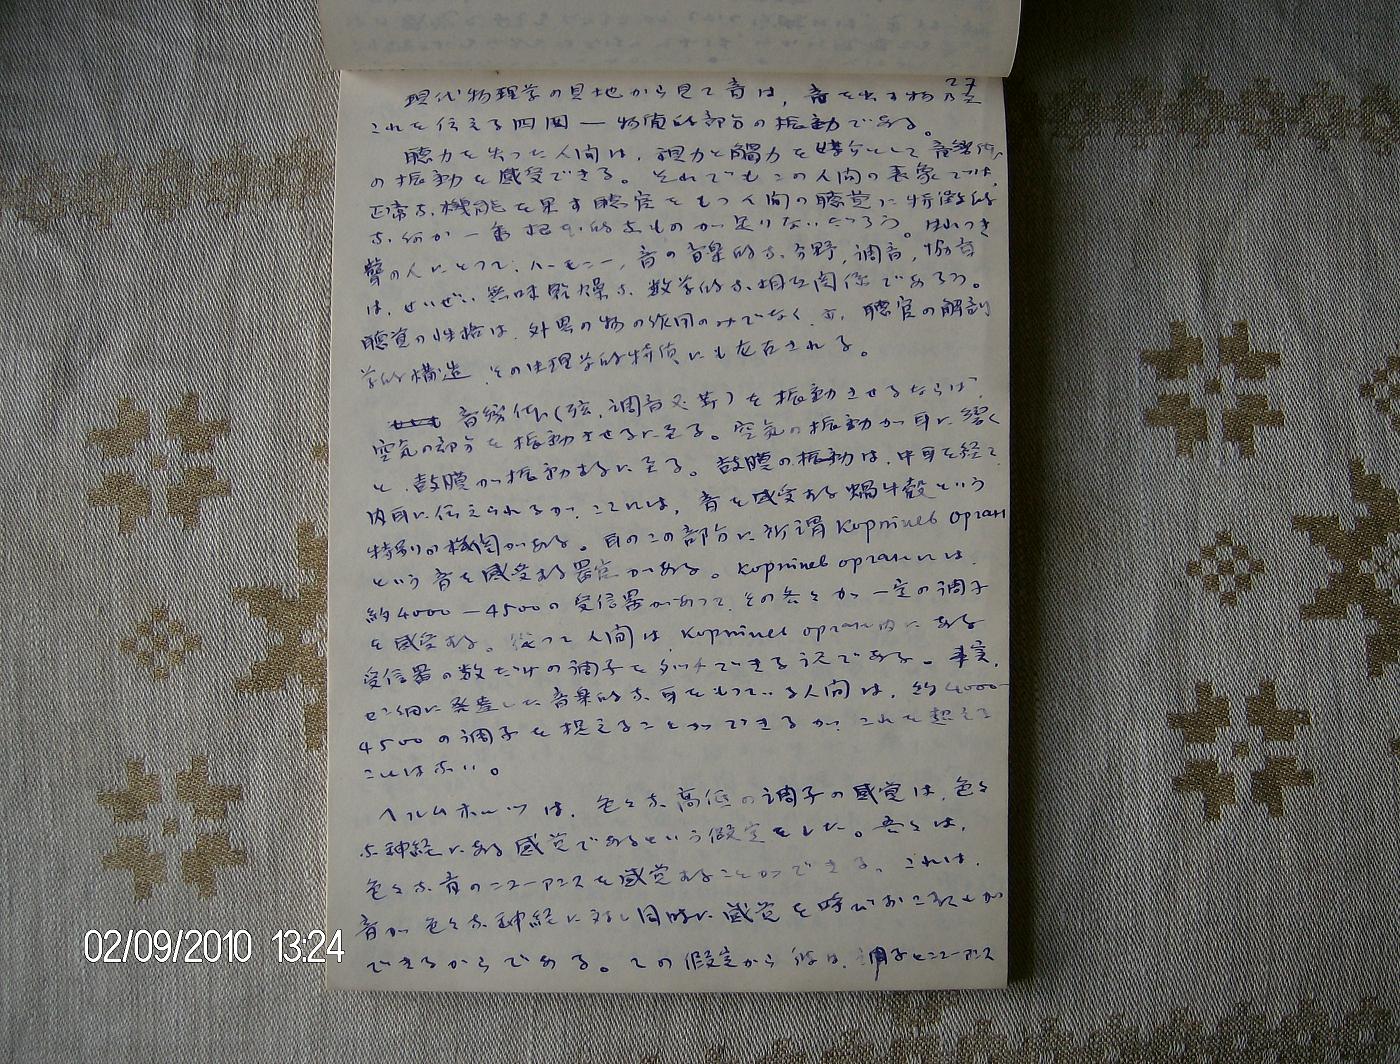 27
現代物理学の見地から見て音は、音を出す物及
これを伝える四囲 — 物質的部分の振動である。
聴力を失った人間は、視力と触力を媒介として音響体
の振動を感受できる。それでもこの人間の表象では、
正常な機能を果す聴官をもつ人間の聴覚に特徴的
な何か一番根本的なものが足りないだろう。生れつき
聾の人にとって、ハーモニー、音の音楽的な分野、調音、協音
は、せいぜい無味乾燥な数学的な相互関係であろう。
聴覚の性格は、外界の物の作用のみでなく、又、聴官の解剖
学的構造、その生理学的特質にも左右される。
音響体(弦、調音叉等)を振動させるならば、
空気の部分を振動させるに至る。空気の振動が耳に響く
と、鼓膜が振動するに至る。鼓膜の振動は、中耳を経て、
内耳に伝えられるが、ここには、音を感受する蝸牛殻という
特別の機関がある。耳のこの部分に所謂 Kортиев орган
という音を感受する器官がある。Kортиев органには、
約4000—4500の受信器があって、その各々が一定の調子
を感受する。従って人間は、Kортиев орган内にある
受信器の数だけの調子をキャッチできる訳である。事実、
せん細に発達した音楽的な耳をもっている人間は、約4000—
4500の調子を捉えることができるが、これを超える
ことはない。
ヘルムホルツは、色々な高低の調子の感覚は、色々
な神経による感覚であるという仮定をした。吾々は、
色々な音のニューアンスを感覚することができる。これは、
音が色々な神経に対し同時に感覚を呼びおこすことが
できるからである。この仮定から彼は、調子とニューアンス
02/09/2010 13:24